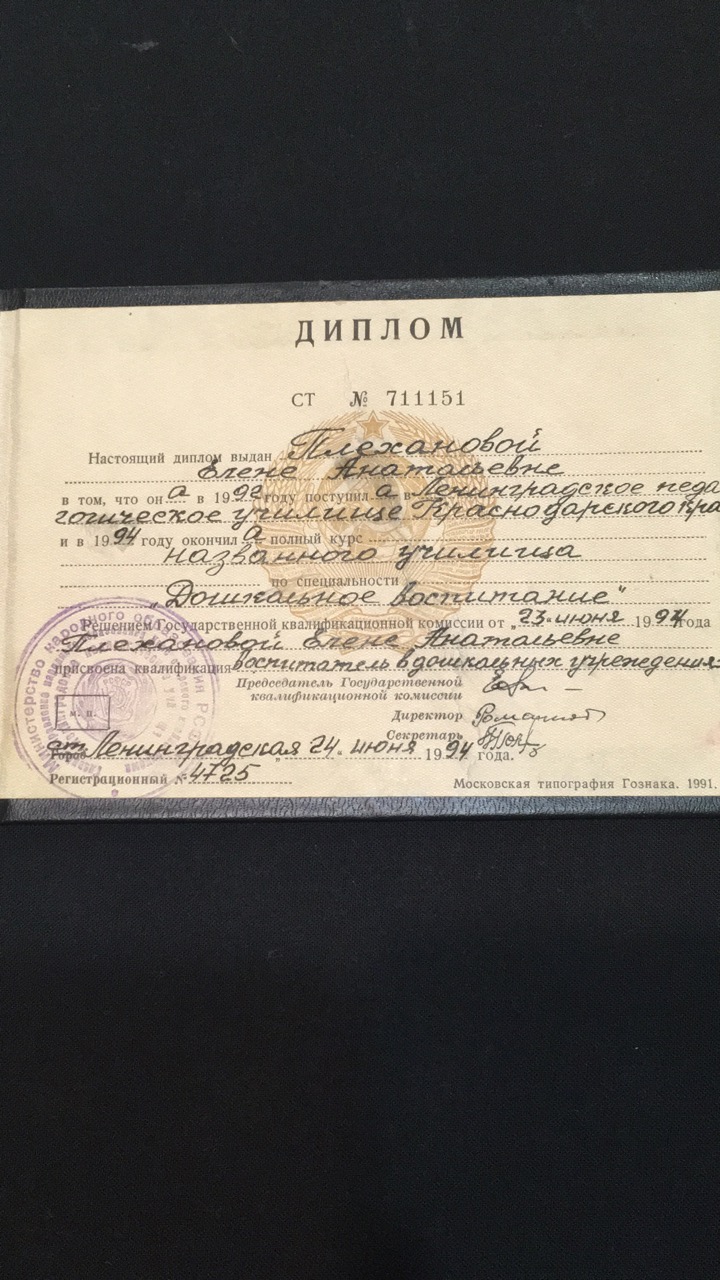 ДИПЛОМ
СТ № 711151
Настоящий диплом выдан Плехановой
Елене Анатольевне
в том, что он а в 1992 году поступил а в Ленинградское педа
гогическое училище Краснодарского кра
и в 1994 году окончил а полный курс
названного училища
по специальности
"Дошкольное воспитание"
Решением Государственной квалификационной комиссии от „23" июня 1994 года
Плехановой Елене Анатольевне
присвоена квалификация воспитатель в дошкольных учреждениях
Председатель Государственной
квалификационной комиссии
Директор
Секретарь
М. П.
Город ст. Ленинградская 24 июня 1994 года.
Регистрационный № 4725
Московская типография Гознака. 1991.
Министерство народного образования РСФСР